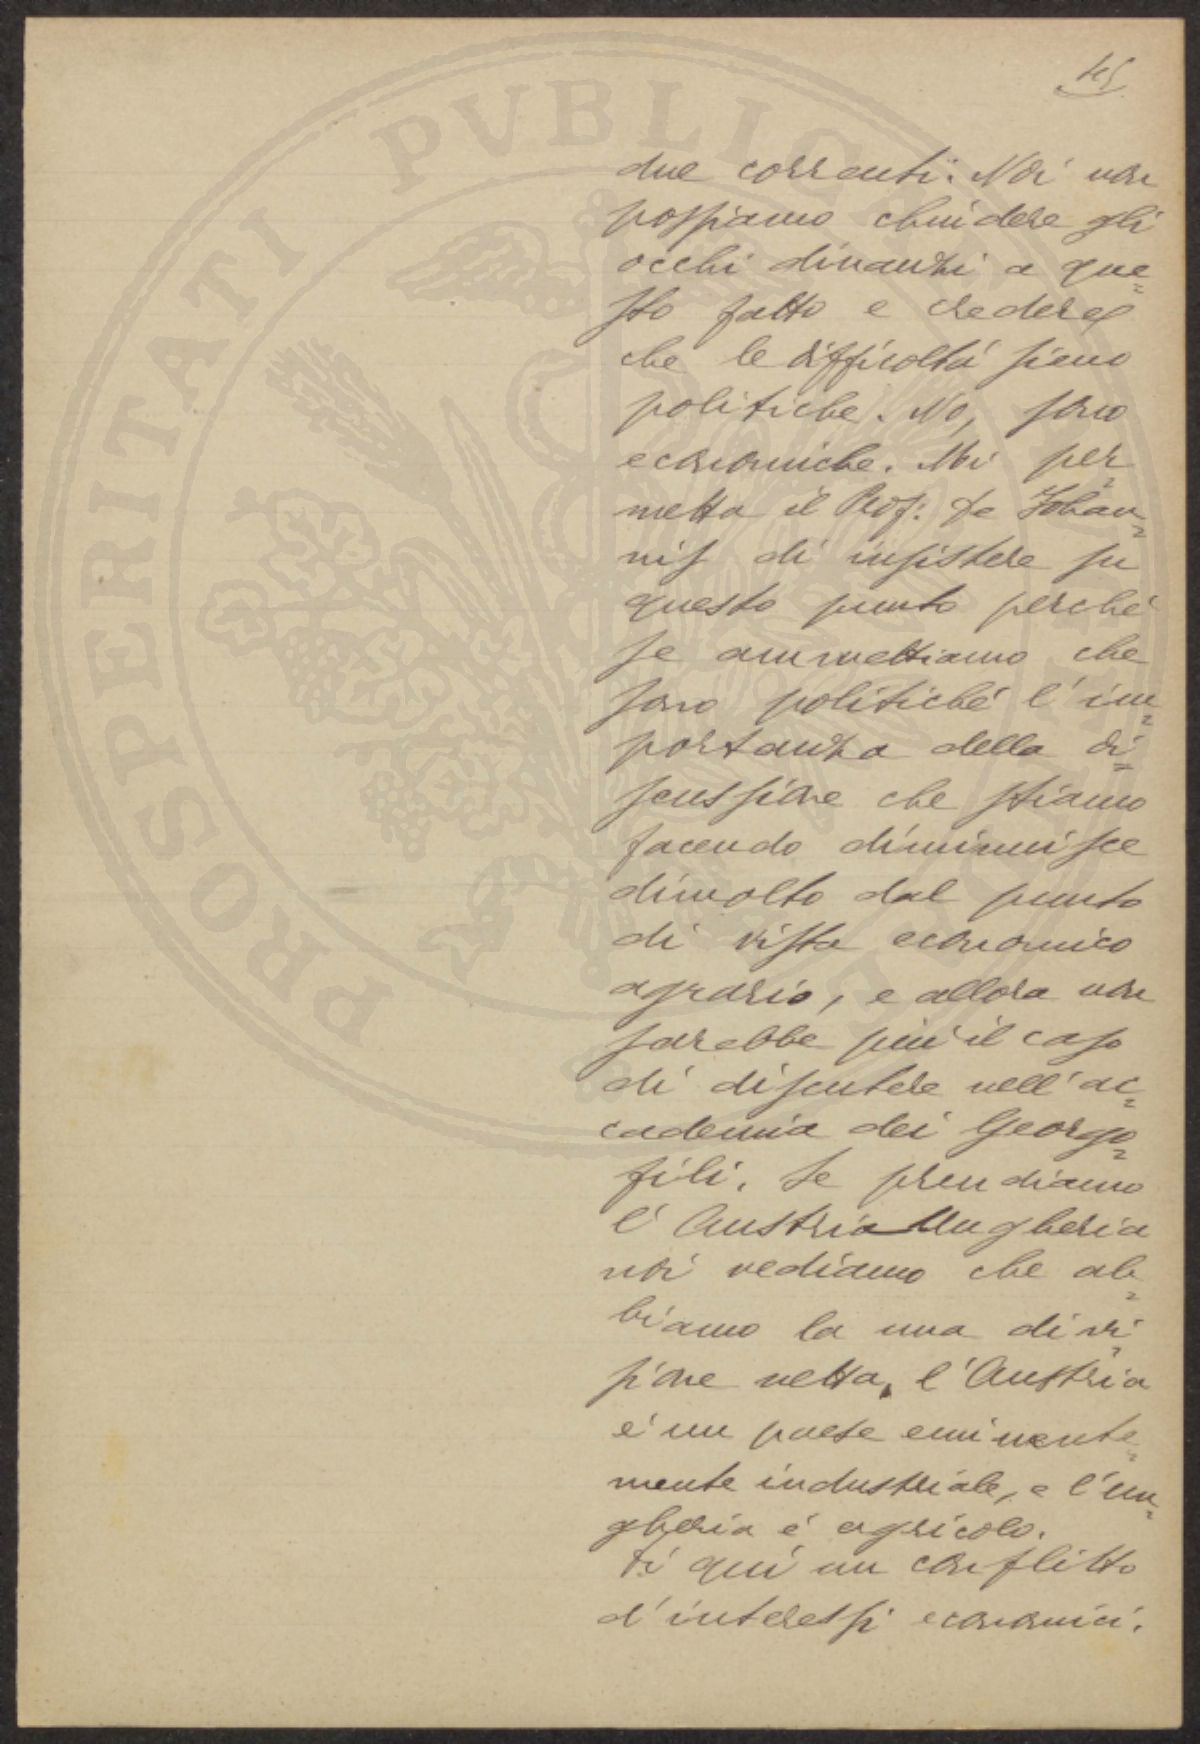 45
due correnti. Noi non
possiamo chiudere gli
occhi dinanzi a que=
sto fatto e credere
che le difficoltà sieno
politiche. No, sono
economiche. Mi per=
metta il Prof: De Johan=
nis di insistere su
questo punto perché
se ammettiamo che
sono politiche l'im=
portanza della di=
scussione che stiamo
facendo diminuisce
dimolto dal punto
di vista economico
agrario, e allora non
sarebbe più il caso
di discutere nell'ac=
cademia dei Georgo=
fili. Se prendiamo
l'Austria Ungheria
noi vediamo che ab=
biamo la una divi=
sione netta, l'Austria
é un paese eminente=
mente industriale, e l'Un=
gheria é agricolo.
Di qui un conflitto
d'interessi economici.
PROSPERITATI PVBLICAE